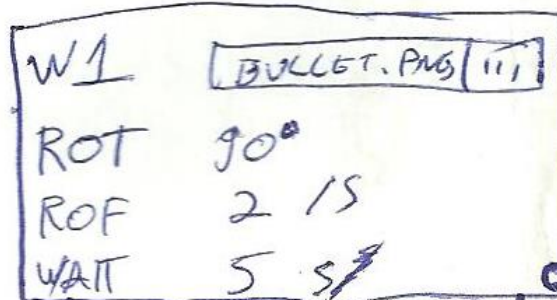 W1 BULLET.PNG ...
ROT 90°
ROF 2 /S
WAIT 5 S